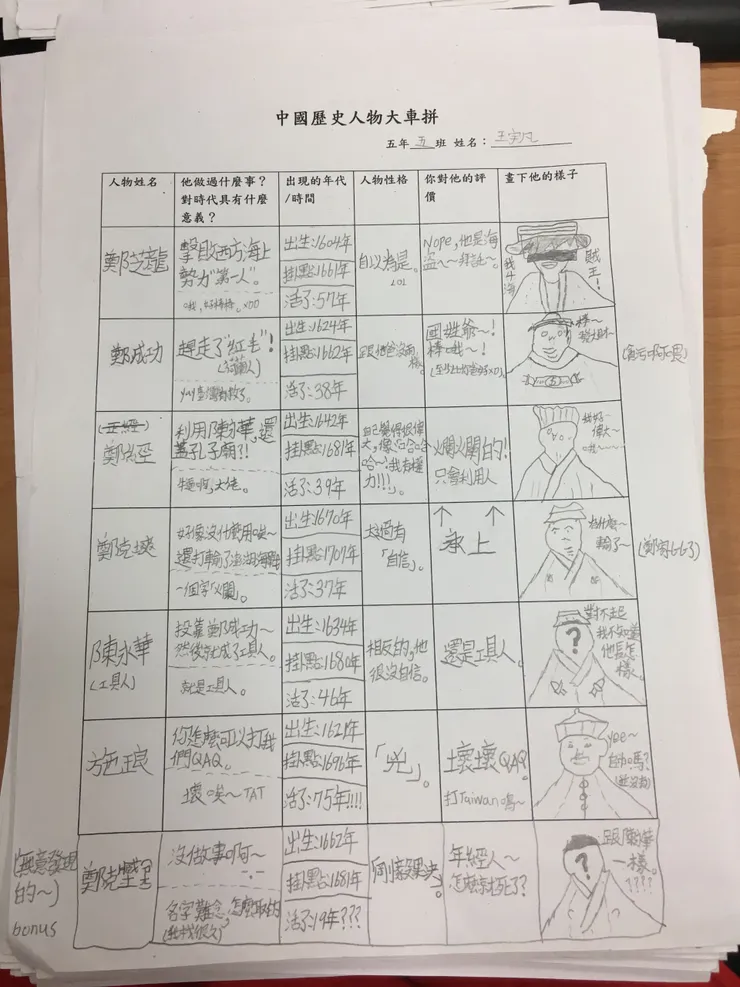 中國歷史人物大車拼
五年五班 姓名：王宇凡
人物姓名
他做過什麼事？
對時代具有什麼
意義？
出現的年代
/時間
人物性格
你對他的評
價
畫下他的樣子
鄭芝龍
擊敗西方海上
勢力"第一人"。
出生:1604年
掛點:1661年
活了:57年
自以為是。
LOL
Nope,他是海
盜～～拜託～。
賊王！
鄭成功
趕走了"紅毛"！
(荷蘭人)
出生:1624年
掛點:1662年
活了:38年
國姓爺～！
棒哦～！
棒～
鄭經
利用陳永華,還
蓋孔子廟?!
出生:1642年
掛點:1681年
活了:39年
自己覺得很偉
大,像「哈哈哈
哈～!我有權
力!!!」。
爛爛的!
只會利用人
偉大～
鄭克塽
好像沒什麼用唉～
還打輸了澎湖海戰
一個字「爛」。
出生:1670年
掛點:1707年
活了:37年
太過有
「自信」。
↑ ↑
承上
為什麼～
輸了～
陳永華
(工具人)
投靠鄭成功～
然後就成了工具人。
就是工具人。
出生:1634年
掛點:1680年
活了:46年
相反的,他
很沒自信。
還是工具人。
?
對不起
我不知道
他長怎
樣。
施琅
你怎麼可以打我
們QAQ。
壞唉～TAT
出生:1621年
掛點:1696年
活了:75年!!!!
「兇」。
壞壞QAQ
打Taiwan嗚～
(無意發現
的～)
bonus
鄭克
沒做事啊～
名字難念,怎麼取的
出生:1662年
掛點:1681年
活了:19年???
年經人～
怎麼就死了?
?
跟陳永華
一樣。
????